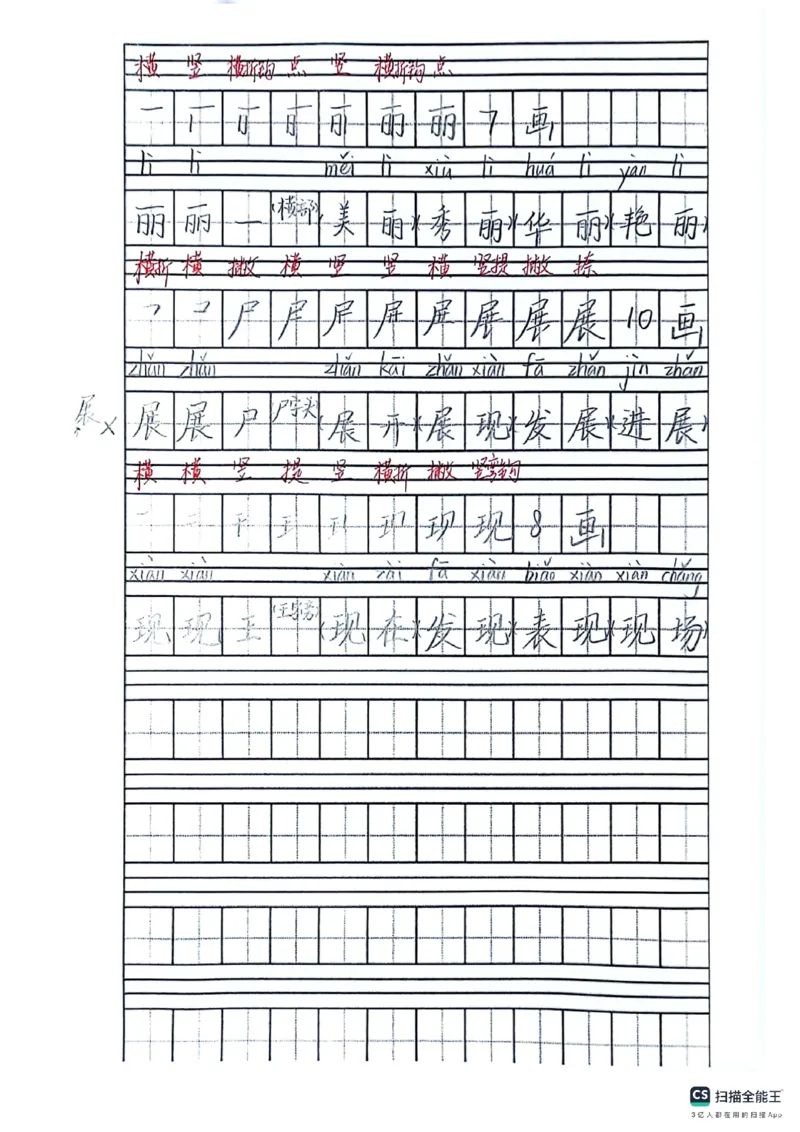 横 竖 横折钩 点 竖 横折钩 点
丽 7 画
lì lì měi lì xiù lì huá lì yàn lì
丽 丽 一 (横部) (美 丽)(秀 丽)(华 丽)(艳 丽)
横折 横 撇 横 竖 竖 横 竖提 撇 捺
尸 屏 展 展 展 10 画
zhǎn zhǎn zhǎn kāi zhǎn xiàn fā zhǎn jìn zhǎn
展× 展 展 户 尸字头 (展 开)(展 现)(发 展)(进 展)
横 横 竖 提 竖 横折 撇 竖弯钩
现 现 8 画
xiàn xiàn xiàn zài fā xiàn biǎo xiàn xiàn chǎng
现 现 王 (王字旁) (现 在)(发 现)(表 现)(现 场)
CS 扫描全能王
3亿人都在用的扫描App